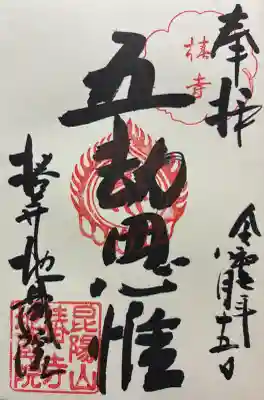 奉拝
椿寺
五劫思惟
令 月十五日
椿寺地蔵院
昆陽山
椿寺
地蔵院